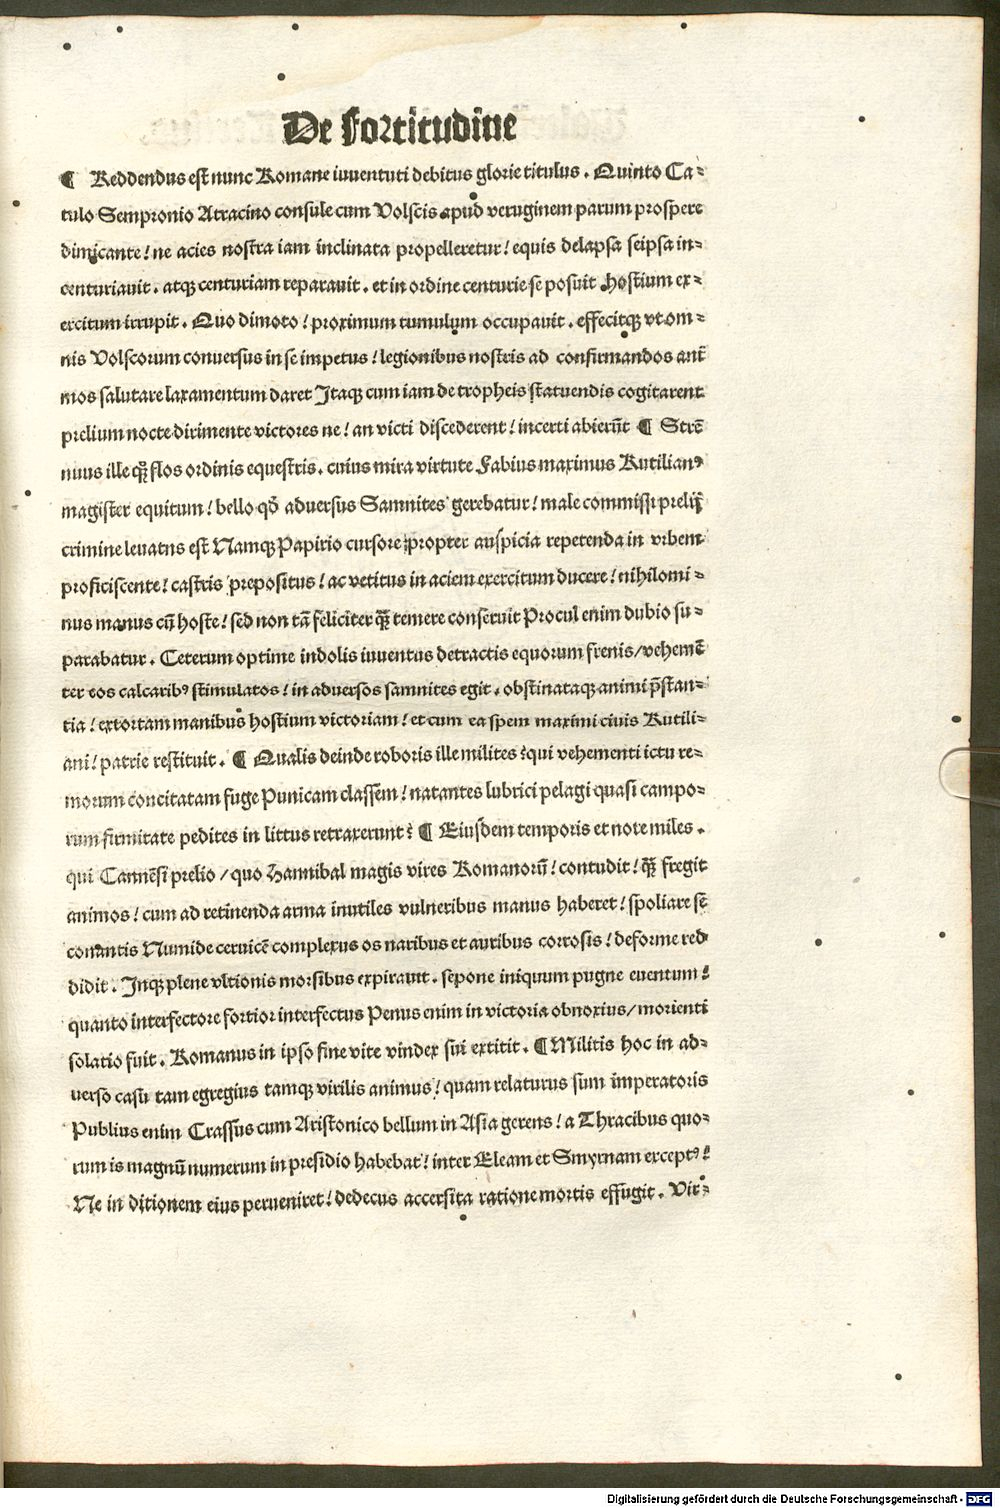 De fortitudine
¶ Reddendus est nunc Romane iuventuti debitus glorie titulus . Quinto Ca⸗
tulo Sempronio Atracino consule cum Volscis apud veruginem parum prospere
dimicante! ne acies nostra iam inclinata propelleretur! equis delapsa seipsa in⸗
centuriavit . atqꝫ centuriam reparavit . et in ordine centurie se posuit hostium ex⸗
ercitum irrupit . Quo dimoto! proximum tumulum occupavit . effecitqꝫ vt om⸗
nis Volscorum conversus in se impetus! legionibus nostris ad confirmandos ani
mos salutare laxamentum daret Itaqꝫ cum iam de tropheis statuendis cogitarent
prelium nocte dirimente victores ne! an victi discederent! incerti abierūt ¶ Strē
nuus ille qꝫ flos ordinis equestris . cuius mira virtute Fabius maximus Rutilianꝰ
magister equitum! bello qđ adversus Samnites gerebatur! male commissi prelij
crimine levatns est Namqꝫ Papirio cursore propter auspicia repetenda in vrbem
proficiscente! castris prepositus! ac vetitus in aciem exercitum ducere! nihilomi⸗
nus manus cū hoste! sed non tā feliciter qꝫ temere conseruit Procul enim dubio su⸗
parabatur . Ceterum optime indolis iuventus detractis equorum frenis/vehemē
ter eos calcaribꝰ stimulatos! in adversos samnites egit . obstinataqꝫ animi p̄stan⸗
tia! extortam manibus hostium victoriam! et cum ea spem maximi civis Rutili⸗
ani! patrie restituit . ¶ Qualis deinde roboris ille milites ? qui vehementi ictu re⸗
morum concitatam fuge Punicam classem! natantes lubrici pelagi quasi campo⸗
rum firmitate pedites in littus retraxerunt? ¶ Eiusdem temporis et note miles .
qui Cannēsi prelio / quo Hannibal magis vires Romanorū! contudit! qꝫ fregit
animos! cum ad retinenda arma inutiles vulneribus manus haberet! spoliare sē
conantis Numide cervicē complexus os naribus et auribus corrosis! deforme red
didit . Inqꝫ plene vltionis morsibus expiravit . sepone iniquum pugne eventum!
quanto interfectore fortior interfectus Penus enim in victoria obnoxius/morienti
solatio fuit . Romanus in ipso fine vite vindex sui extitit . ¶ Militis hoc in ad⸗
verso casu tam egregius tamqꝫ virilis animus! quam relaturus sum imperatoris
Publius enim Crassus cum Aristonico bellum in Asia gerens! a Thracibus quo⸗
rum is magnū numerum in presidio habebat! inter Eleam et Smyrnam exceptꝰ!
Ne in ditionem eius perveniret! dedecus accersita ratione mortis effugit . Vir⸗
Digitalisierung gefördert durch die Deutsche Forschungsgemeinschaft - DFG